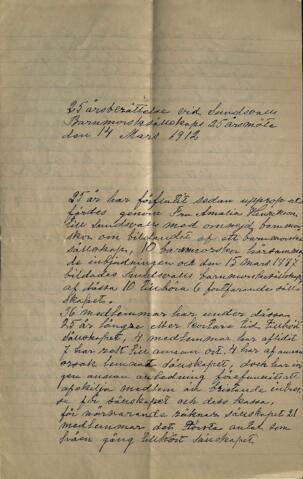 25 årsberättelse vid Sundsvalls
Barnmorskesällskaps 25 årsmöte
den 14 Mars 1912
25 år har förflutit sedan upprop ut
färdes genom Fru Amalia
till Sundsvall med omnejd barnmor
skor om bildandet af ett barnmorske
sällskap, 10 barnmorskor hörsamma
de inbjudningen och den 15 mars 1887
bildades Sundsvalls barnmorskesällskap
af dessa 10 tillhöra 6 fortfarande säll
skapet.
36 medlemmar har under dessa
25 år längre eller kortare tid tillhört
Sällskapet, 4 medlemmar har aflidit
7 har rest till annan ort, 4 har af annan
orsak lemnat Sällskapet, dock har in
gen annan anledning förefunnits att
afskilja medlem än bristande intres
se för sällskapet och dess kassa,
för närvarande räknar sällskapet 21
medlemmar det största antal som
någon gång tillhört Sällskapet